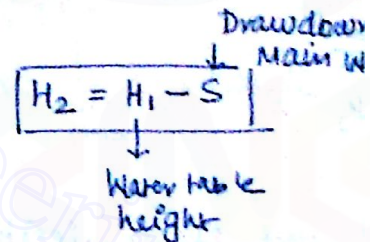 Drawdown
Main W
H₂ = H₁ - S
Water table
height